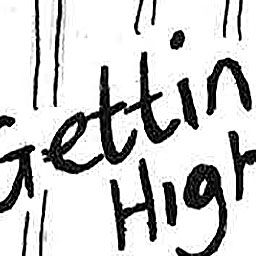 Gettin
High